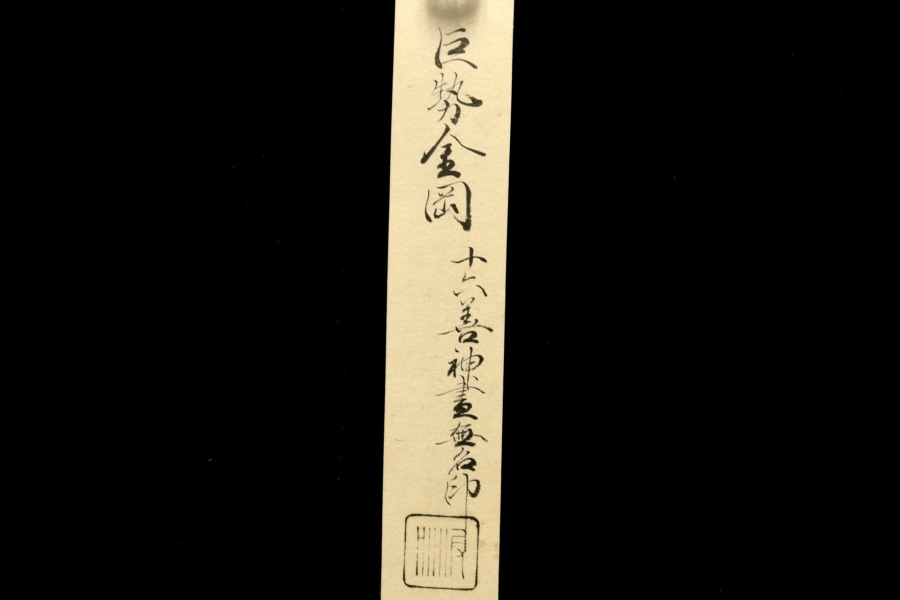 巨勢金岡
十六善神畫無名印